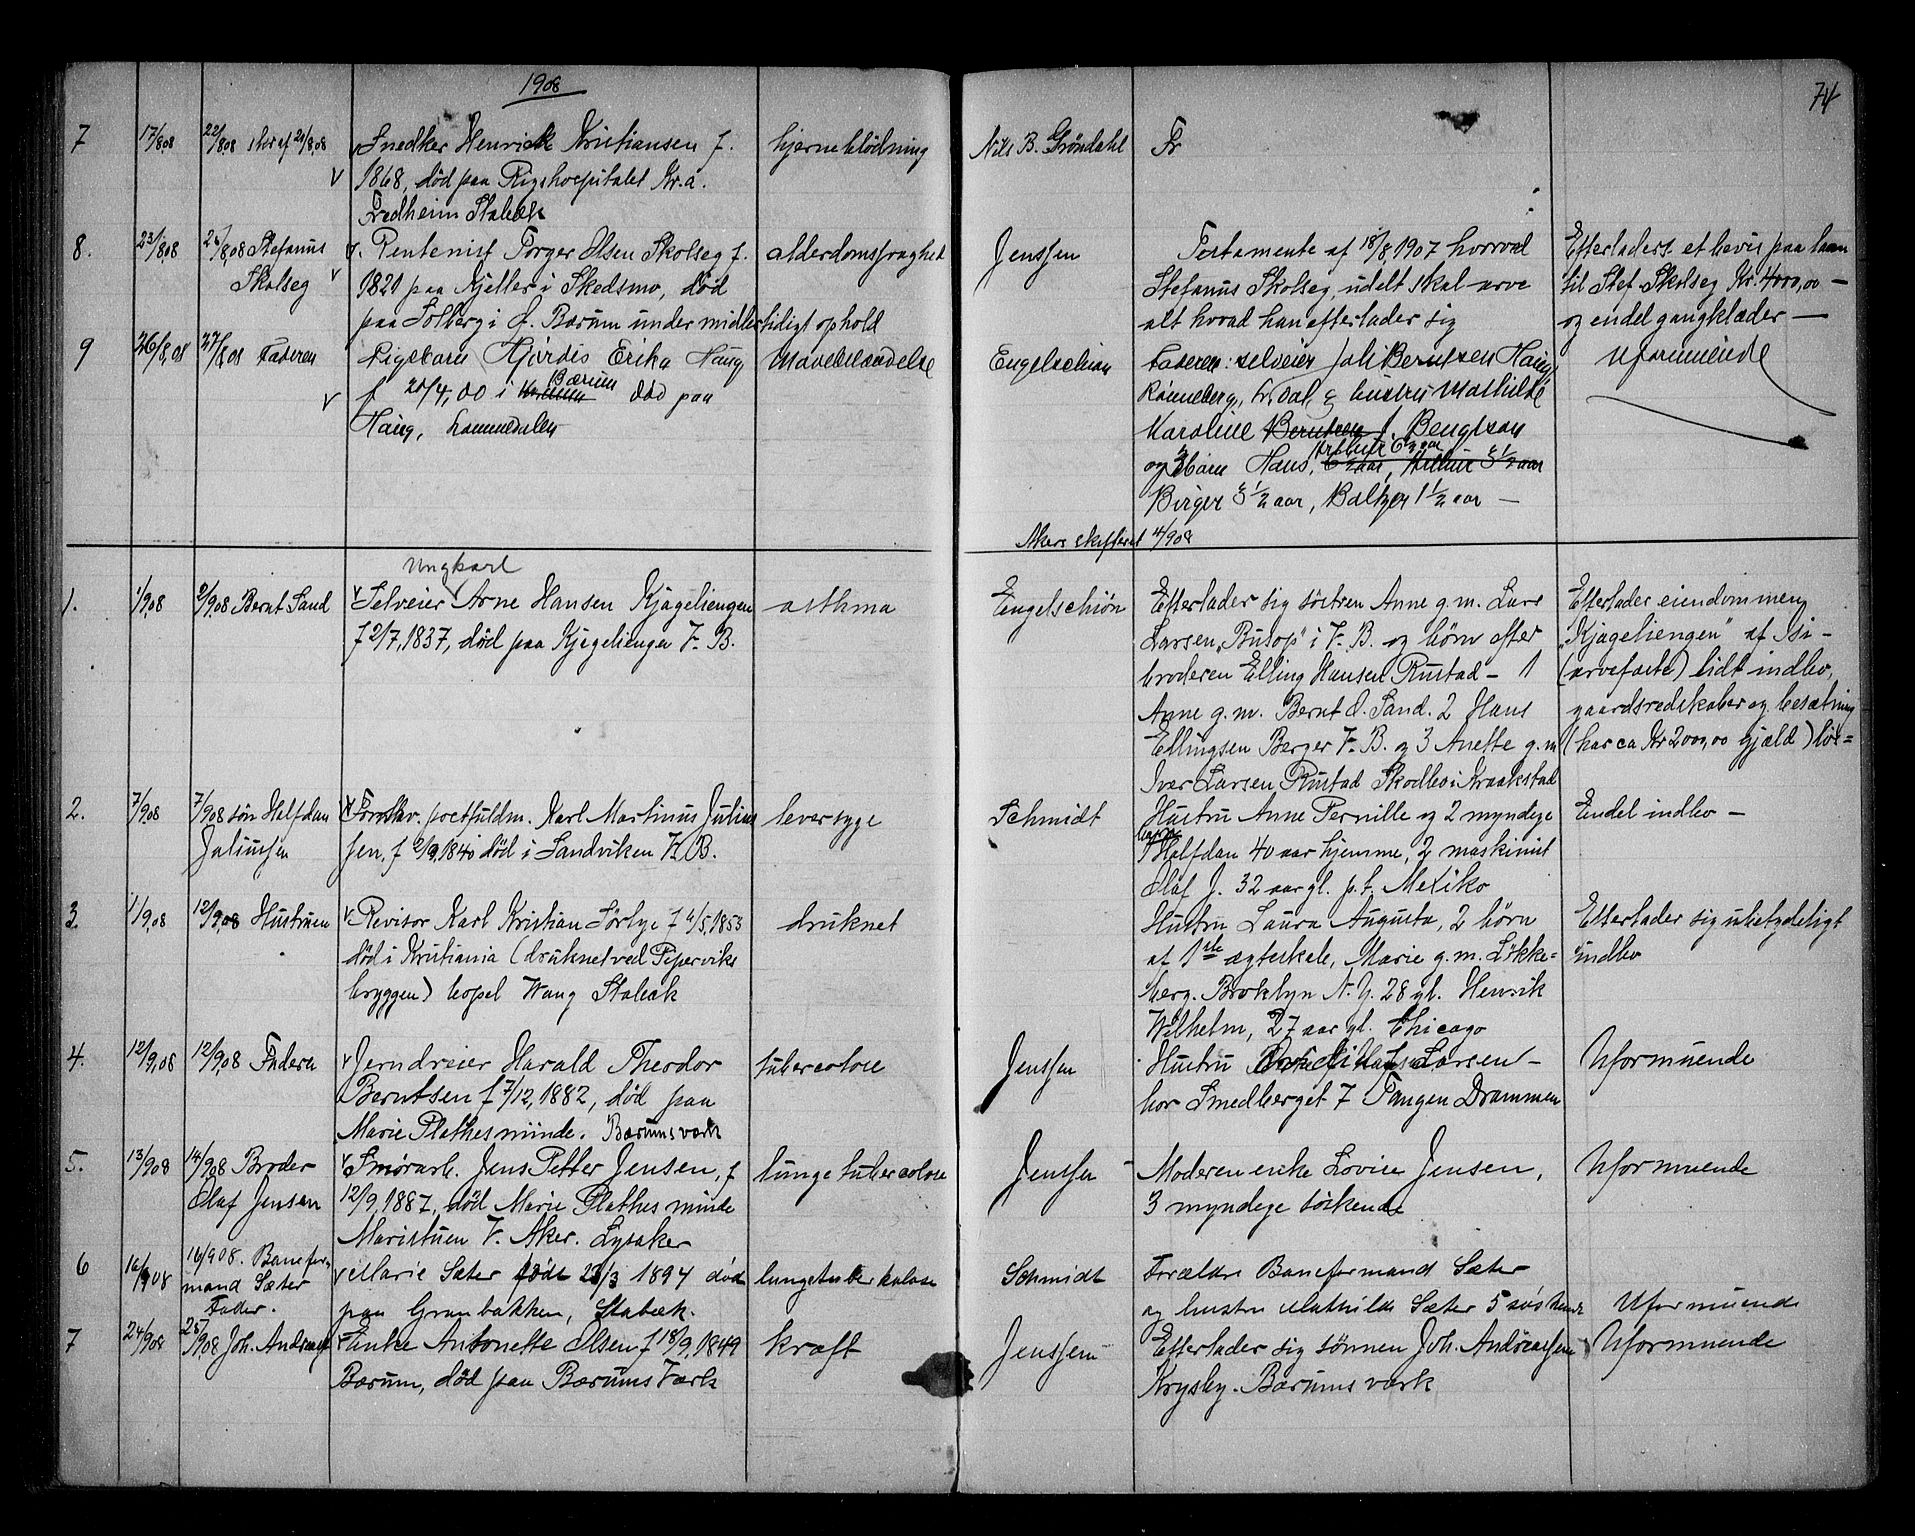 1908
74
7 17/8,08 22/8,08 skr af 20/8,08 Snedker Henrick Kristiansen f. hjerneblödning Nils B. Gröndahl Fr
1868, död paa Rigshospitalet Kr.a.
Fredheim Stabæk
8. 23/8,08 26/8,08 Stefanus Rentenist Torger Olsen Skolseg f. alderdomssvaghed Jenssen Testamente af 18/8,1907 hvorved Efterladers et bevis paa laan
Skolseg 1821 paa Kjeller i Skedsmo, död Stefanus Skolseg, udelt skal arve til Stef. Skolseg Kr. 4000,00 —
paa Solberg i Ø. Bærum under midlertidigt ophold alt hvad han efterlader sig og endel gangklæder —
9 26/8,08 27/8,08 Faderen Pigebarn Hjördis Erika Haug Engelschiön Faderen: selveier Joh Berntsen Haug Uformuende
f 20/4,00 i Bærum död paa Lom.dal, & hustru Mathilde
Haug, Lommedalen Karoline Berntsen f. Bengtson
og 3 børn Hans, Arthur 6½ aar, Arthur 3½ aar
Birger 3½ aar, Baltzer 1½ aar —
Akers skifteret 4/9 08
Ungkarl
1. 1/9,08 2/9,08 Bernt Sand Selveier Arne Hansen Kjageliengen asthma Engelschiön Efterlader sig söstren Anne g.m. Lars Efterlader eiendommen
f 2/7,1837, död paa Kjageliengen V. B. Larsen "Busop" i V. B. og börn efter "Kjageliengen" af
broderen Elling Hansen Rustad — 1 (arvefæste) lidt indbo,
Anne g.m. Bernt O. Sand. 2 Hans gaardsredskaber og besætning
Ellingsen Berger V. B. og 3 Anette g.m (har ca Kr 2000,00 gjæld) lös=
Iver Larsen Rustad Skodbo i Kraakstad
2. 7/9 08 7/9 08 sön Halfdan Forhv. postfuldm. Karl Martinus Julius leversyge Schmidt Hustru Anne Pernille og 2 myndige Endel indbo —
Juliussen sen, f 6/9,1840 död i Sandviken V. B. børn 1 Halfdan 40 aar hjemme, 2 maskinist
Olaf J. 32 aar gl. p.t. Mexiko
3. 11/9,08 12/9,08 Hustruen Revisor Karl Kristian Sörbye f 4/5,1853 druknet Hustru Laura Augusta, 2 börn Efterlader sig ubetydeligt
död i Kristiania (druknet ved Piperviks af 1ste ægteskab, Marie g.m. Lökke= indbo
bryggen) bopel Wang Stabæk berg. Broklyn N. Y. 28 gl. Henrik
Wilhelm, 27 aar gl. Chicago
4. 12/9,08 12/9,08 Faderen Jerndreier Harald Theodor tubercolose Jenssen Hustru Larsen — Uformuende
Berntsen f 7/12,1882, död paa bor Smedberget 7 Tangen Drammen
Marie Plathes minde. Bærums værk
5. 13/9 08 14/9,08 Broder Smörarb. Jens Petter Jensen, f lungetubercolose Jenssen Moderen enke Lovise Jensen, Uformuende
Olaf Jensen 12/9,1887, död Marie Plathes minde 3 myndige söskende
Maristuen V. Aker. Lysaker
6 16/9 08 16/9 08. Banefor- Marie Sæter født 23/3 1894 död lungetuberkulose Schmidt Forældre Baneformand Sæter
mand Sæter paa Granbakken, Stabæk. og hustru Mathilde Sæter 5 søskende Uformuende
Fader.
7 24/9 08 25/9,08 Joh. Andreassen Enke Antonette Olsen f 18/9,1849 kræft Jenssen Efterlader sig sönnen Joh. Andreassen Uformuende
Bærum, död paa Bærums Værk Krysby. Bærums værk